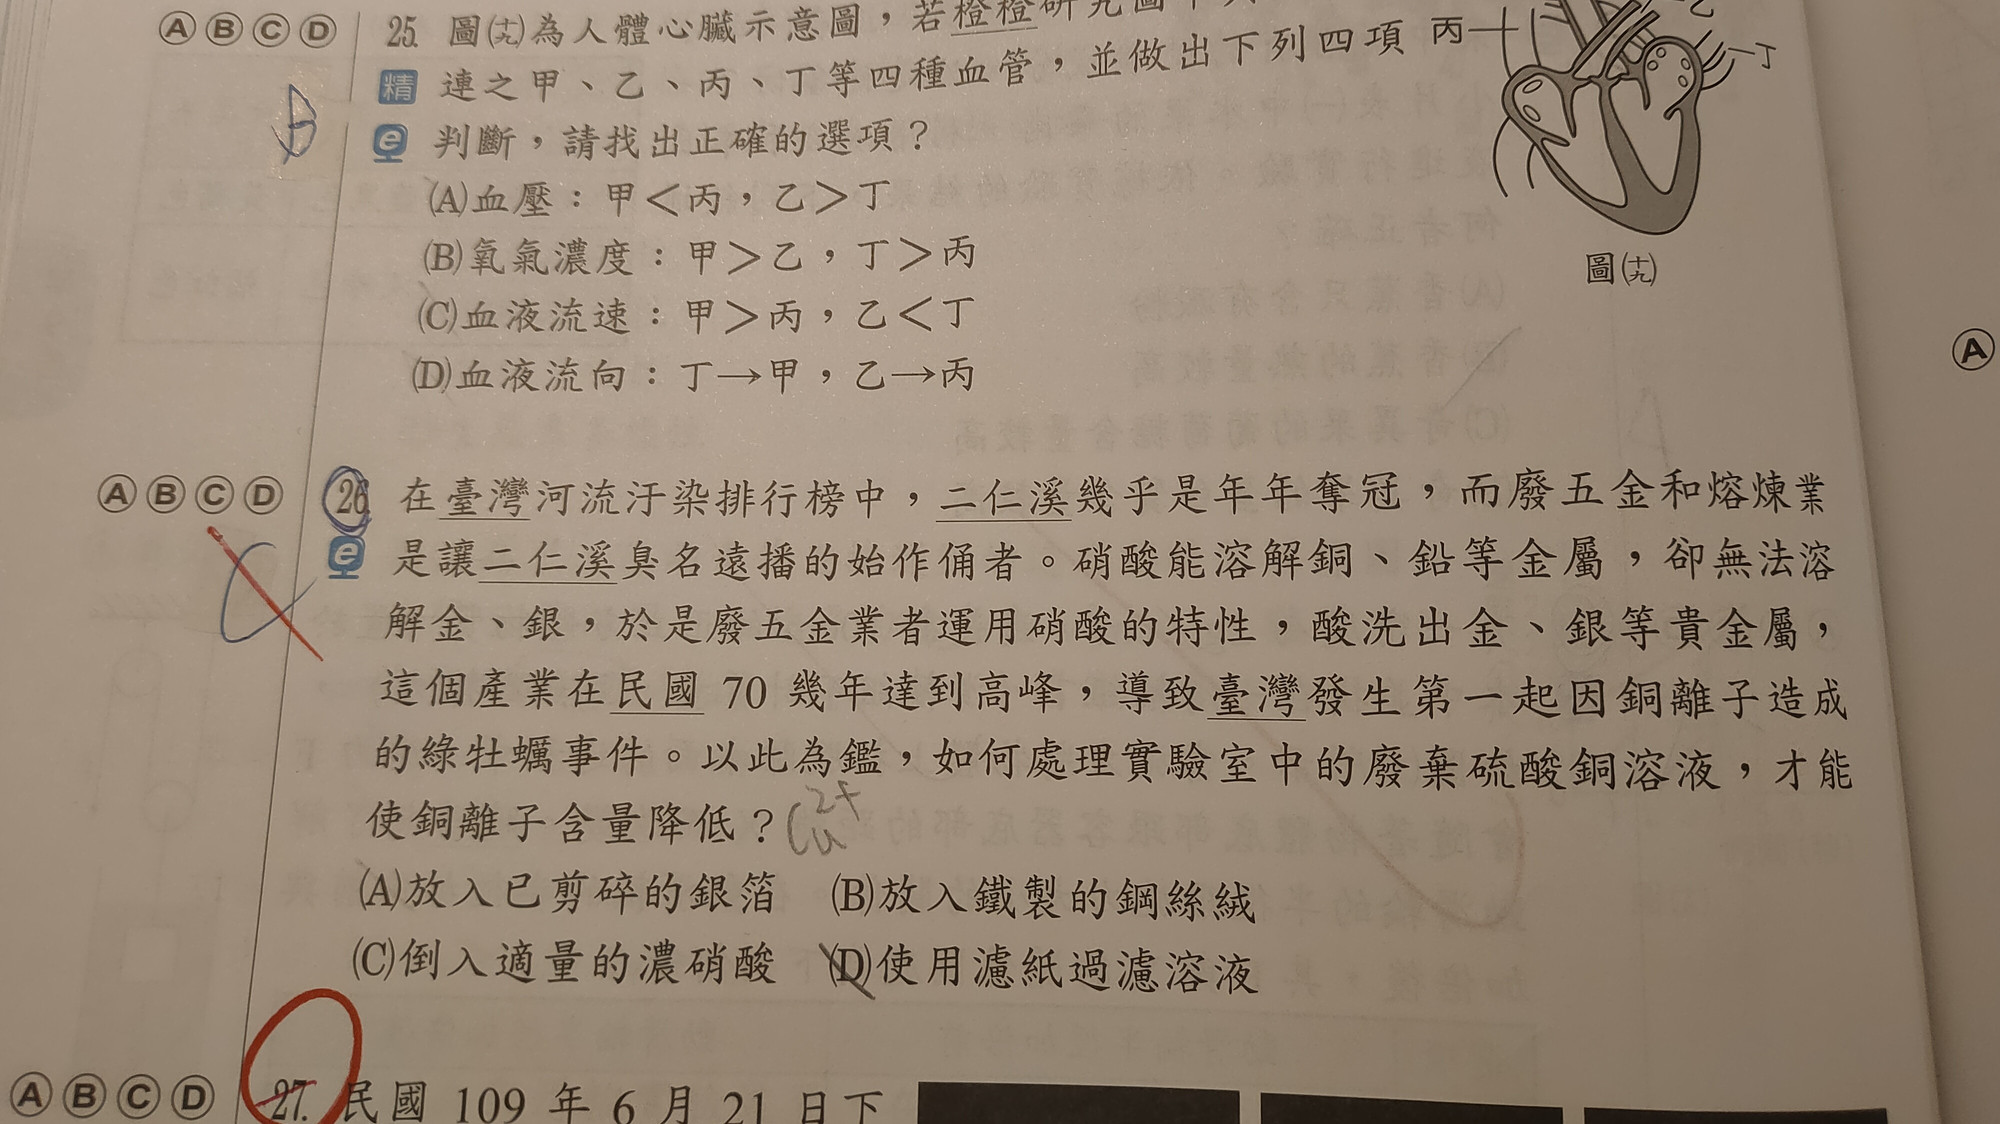 ⒶⒷⒸⒹ 25. 圖(十九)為人體心臟示意圖，若橙橙研究圖中
連之甲、乙、丙、丁等四種血管，並做出下列四項
精
e 判斷，請找出正確的選項？
B
(A)血壓：甲＜丙，乙＞丁
(B)氧氣濃度：甲＞乙，丁＞丙
(C)血液流速：甲＞丙，乙＜丁
(D)血液流向：丁→甲，乙→丙
乙
丙
丁
圖(十九)
Ⓐ
ⒶⒷⒸⒹ 26. 在臺灣河流汙染排行榜中，二仁溪幾乎是年年奪冠，而廢五金和熔煉業
e 是讓二仁溪臭名遠播的始作俑者。硝酸能溶解銅、鉛等金屬，卻無法溶
C
解金、銀，於是廢五金業者運用硝酸的特性，酸洗出金、銀等貴金屬，
這個產業在民國 70 幾年達到高峰，導致臺灣發生第一起因銅離子造成
的綠牡蠣事件。以此為鑑，如何處理實驗室中的廢棄硫酸銅溶液，才能
使銅離子含量降低？Cu2+
(A)放入已剪碎的銀箔 (B)放入鐵製的鋼絲絨
(C)倒入適量的濃硝酸 (D)使用濾紙過濾溶液
ⒶⒷⒸⒹ 27. 民國 109 年 6 月 21 日下